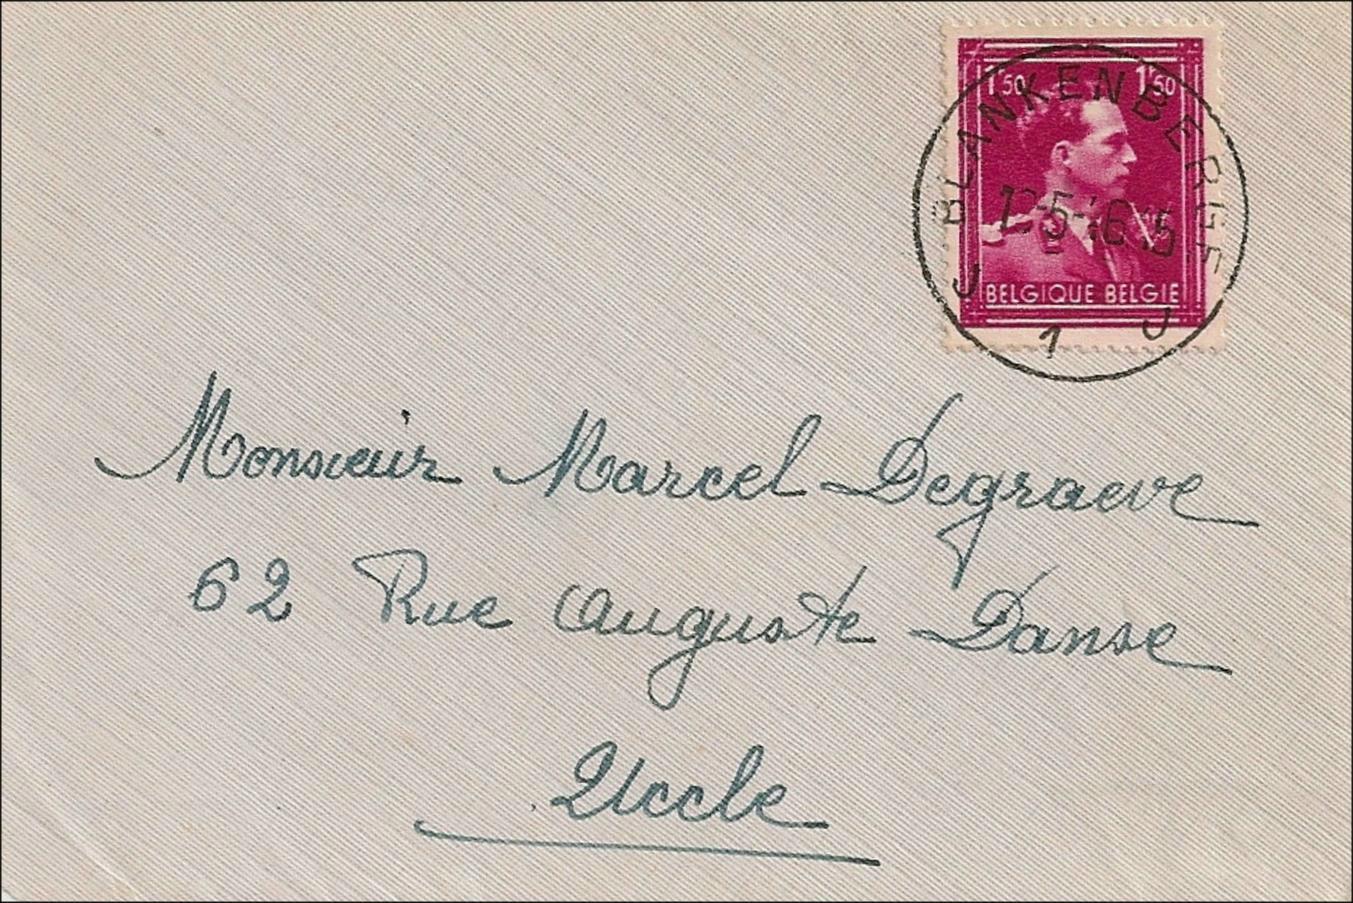 1F50 1F50
BLANKENBERGE
15
BELGIQUE BELGIE
J 1 J
Monsieur Marcel Degraeve
62 Rue Auguste Danse
Uccle